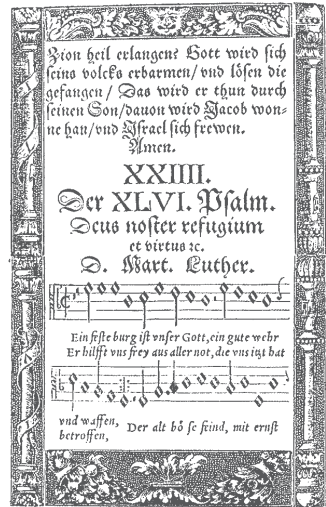 Zion heil erlangen? Gott wird sich
seins volcks erbarmen/ vnd lösen die
gefangen/ Das wird er thun durch
seinen Son/ dauon wird Jacob won-
ne han/ vnd Israel sich frewen.
Amen.
XXIIII.
Der XLVI. Psalm.
Deus noster refugium
et virtus ꝛc.
D. Mart. Luther.
Ein feste burg ist vnser Gott, ein gute wehr
Er hilfft vns frey aus aller not, die vns itzt hat
vnd waffen, Der alt bö se feind, mit ernst
betroffen,